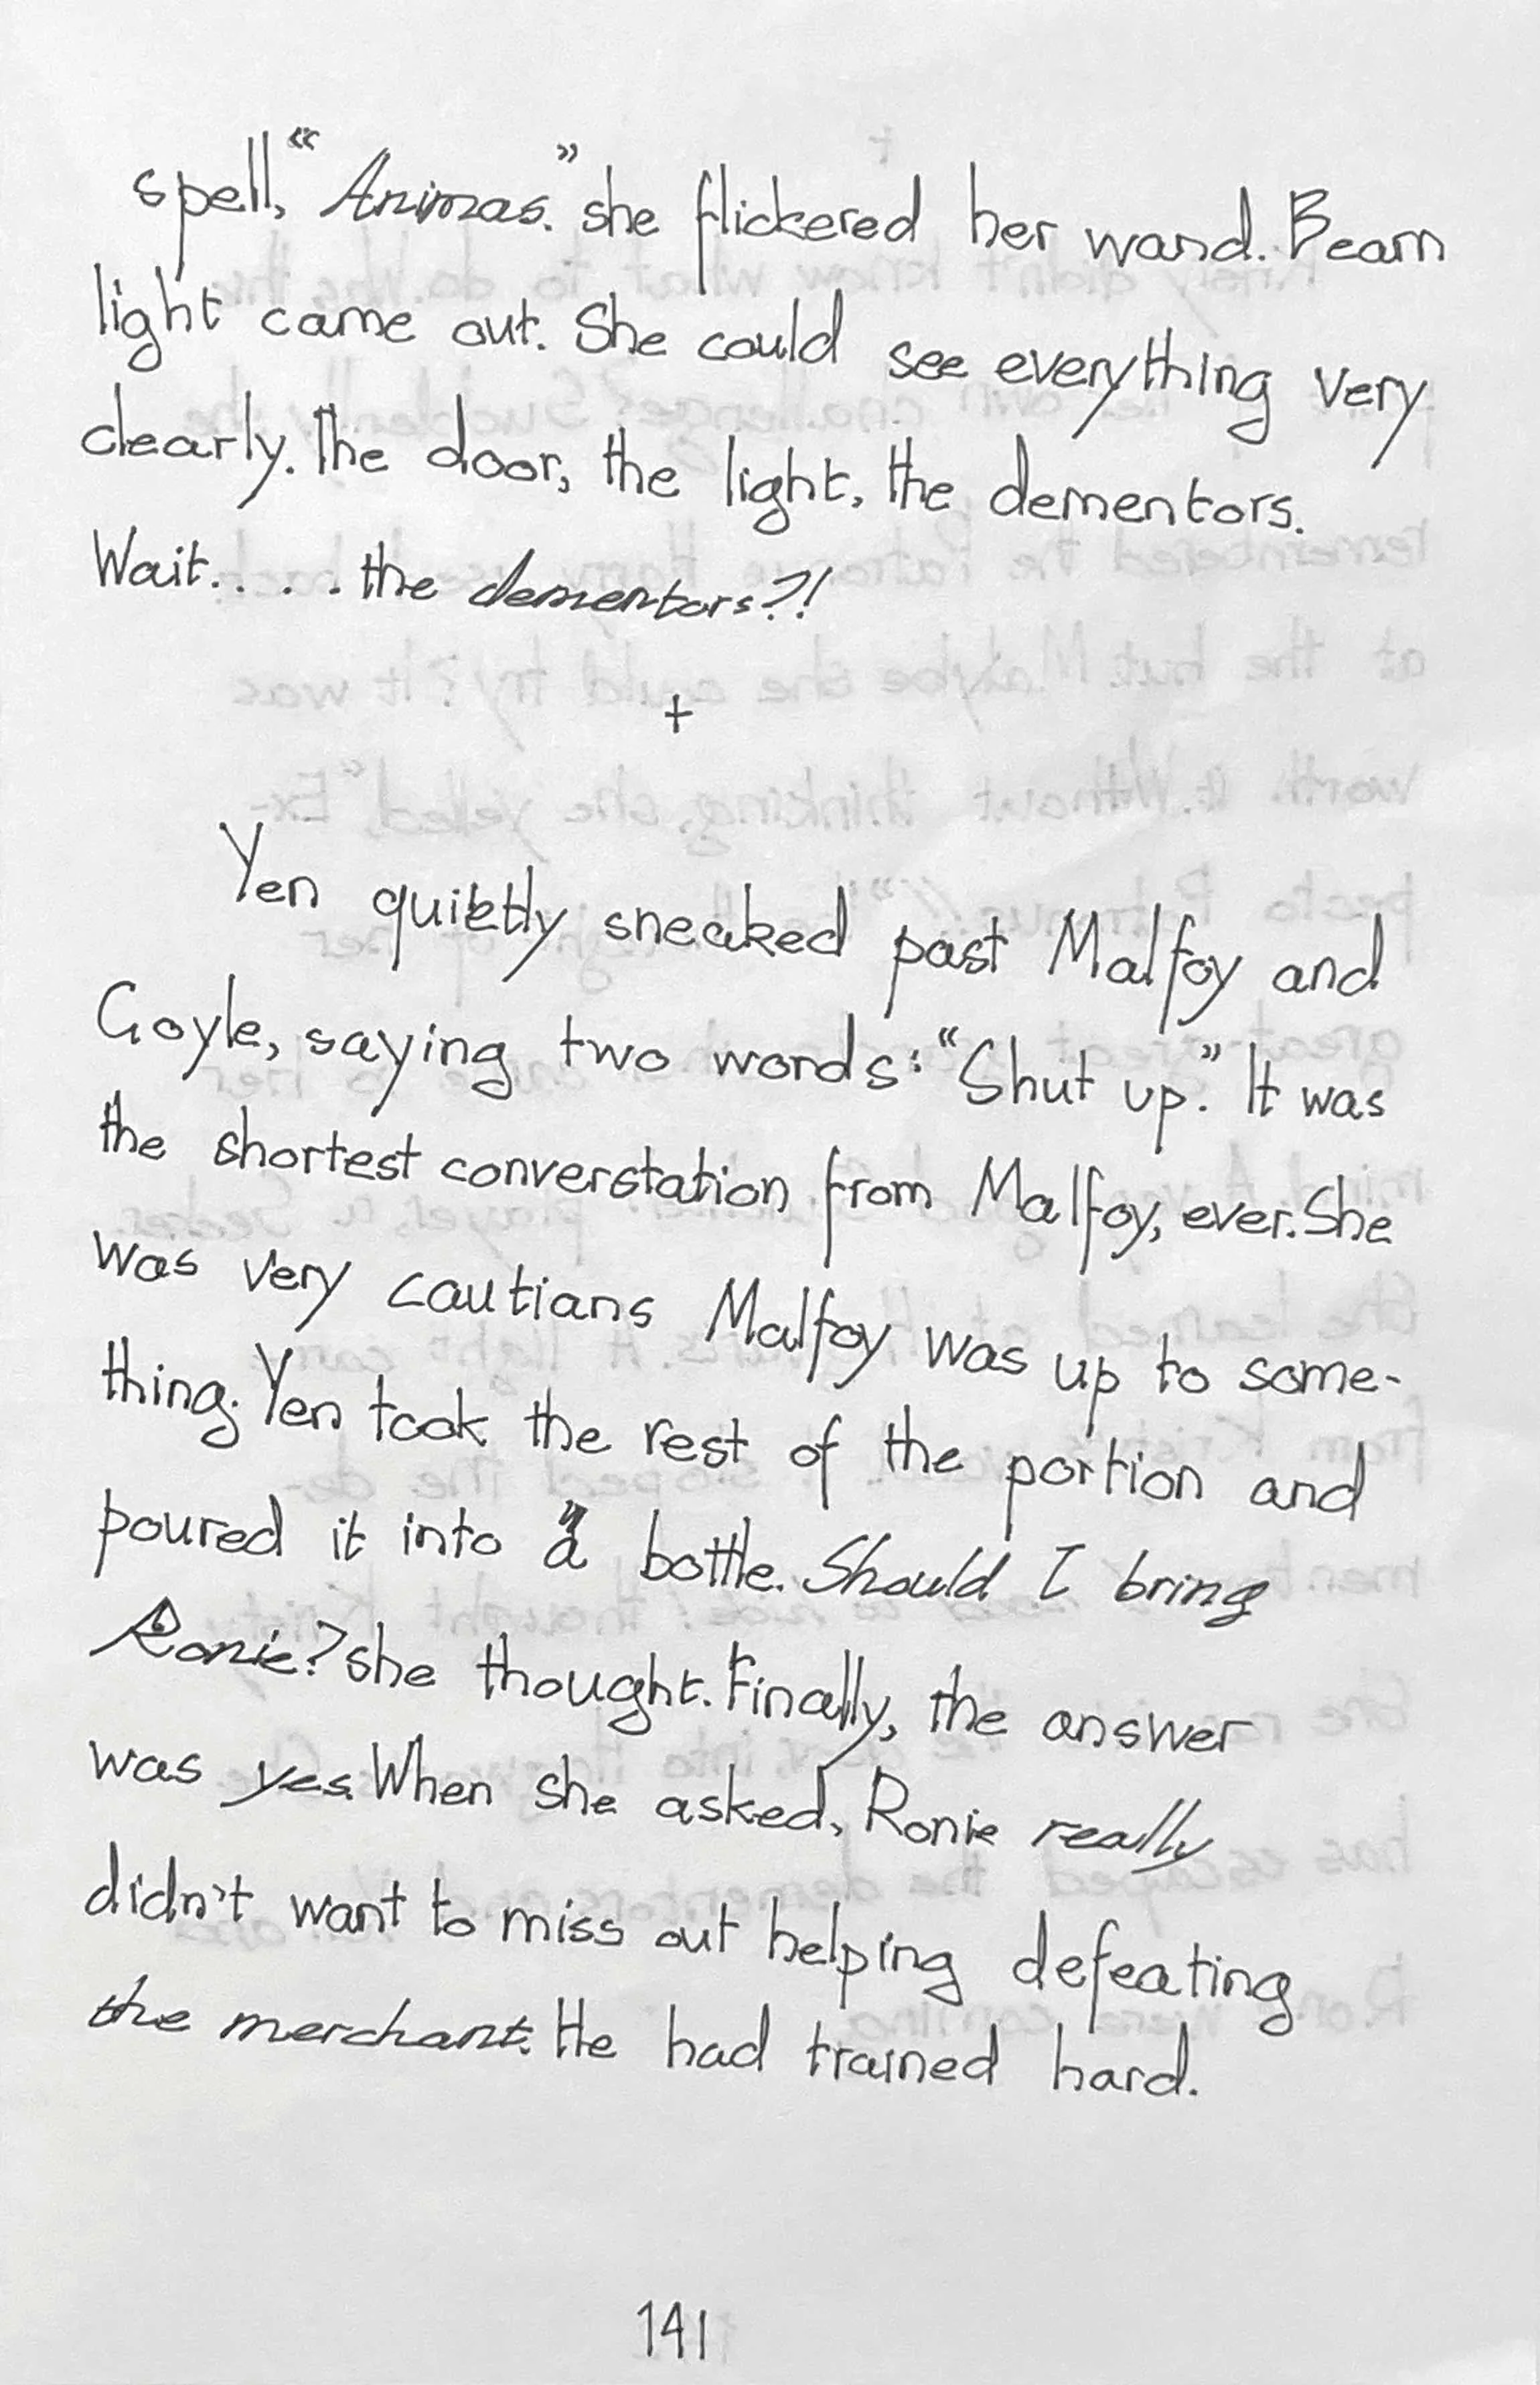 spell, "Animas." she flickered her wand. Beam
light came out. She could see everything very
clearly. The door, the light, the dementors.
Wait.... the dementors?!
+
Yen quietly sneaked past Malfoy and
Goyle, saying two words: "Shut up." It was
the shortest converstation from Malfoy, ever. She
was very cautians Malfoy was up to some-
thing. Yen took the rest of the portion and
poured it into a bottle. Should I bring
Ronie? she thought. Finally, the answer
was yes. When she asked, Ronie really
didn't want to miss out helping defeating
the merchant. He had trained hard.
141